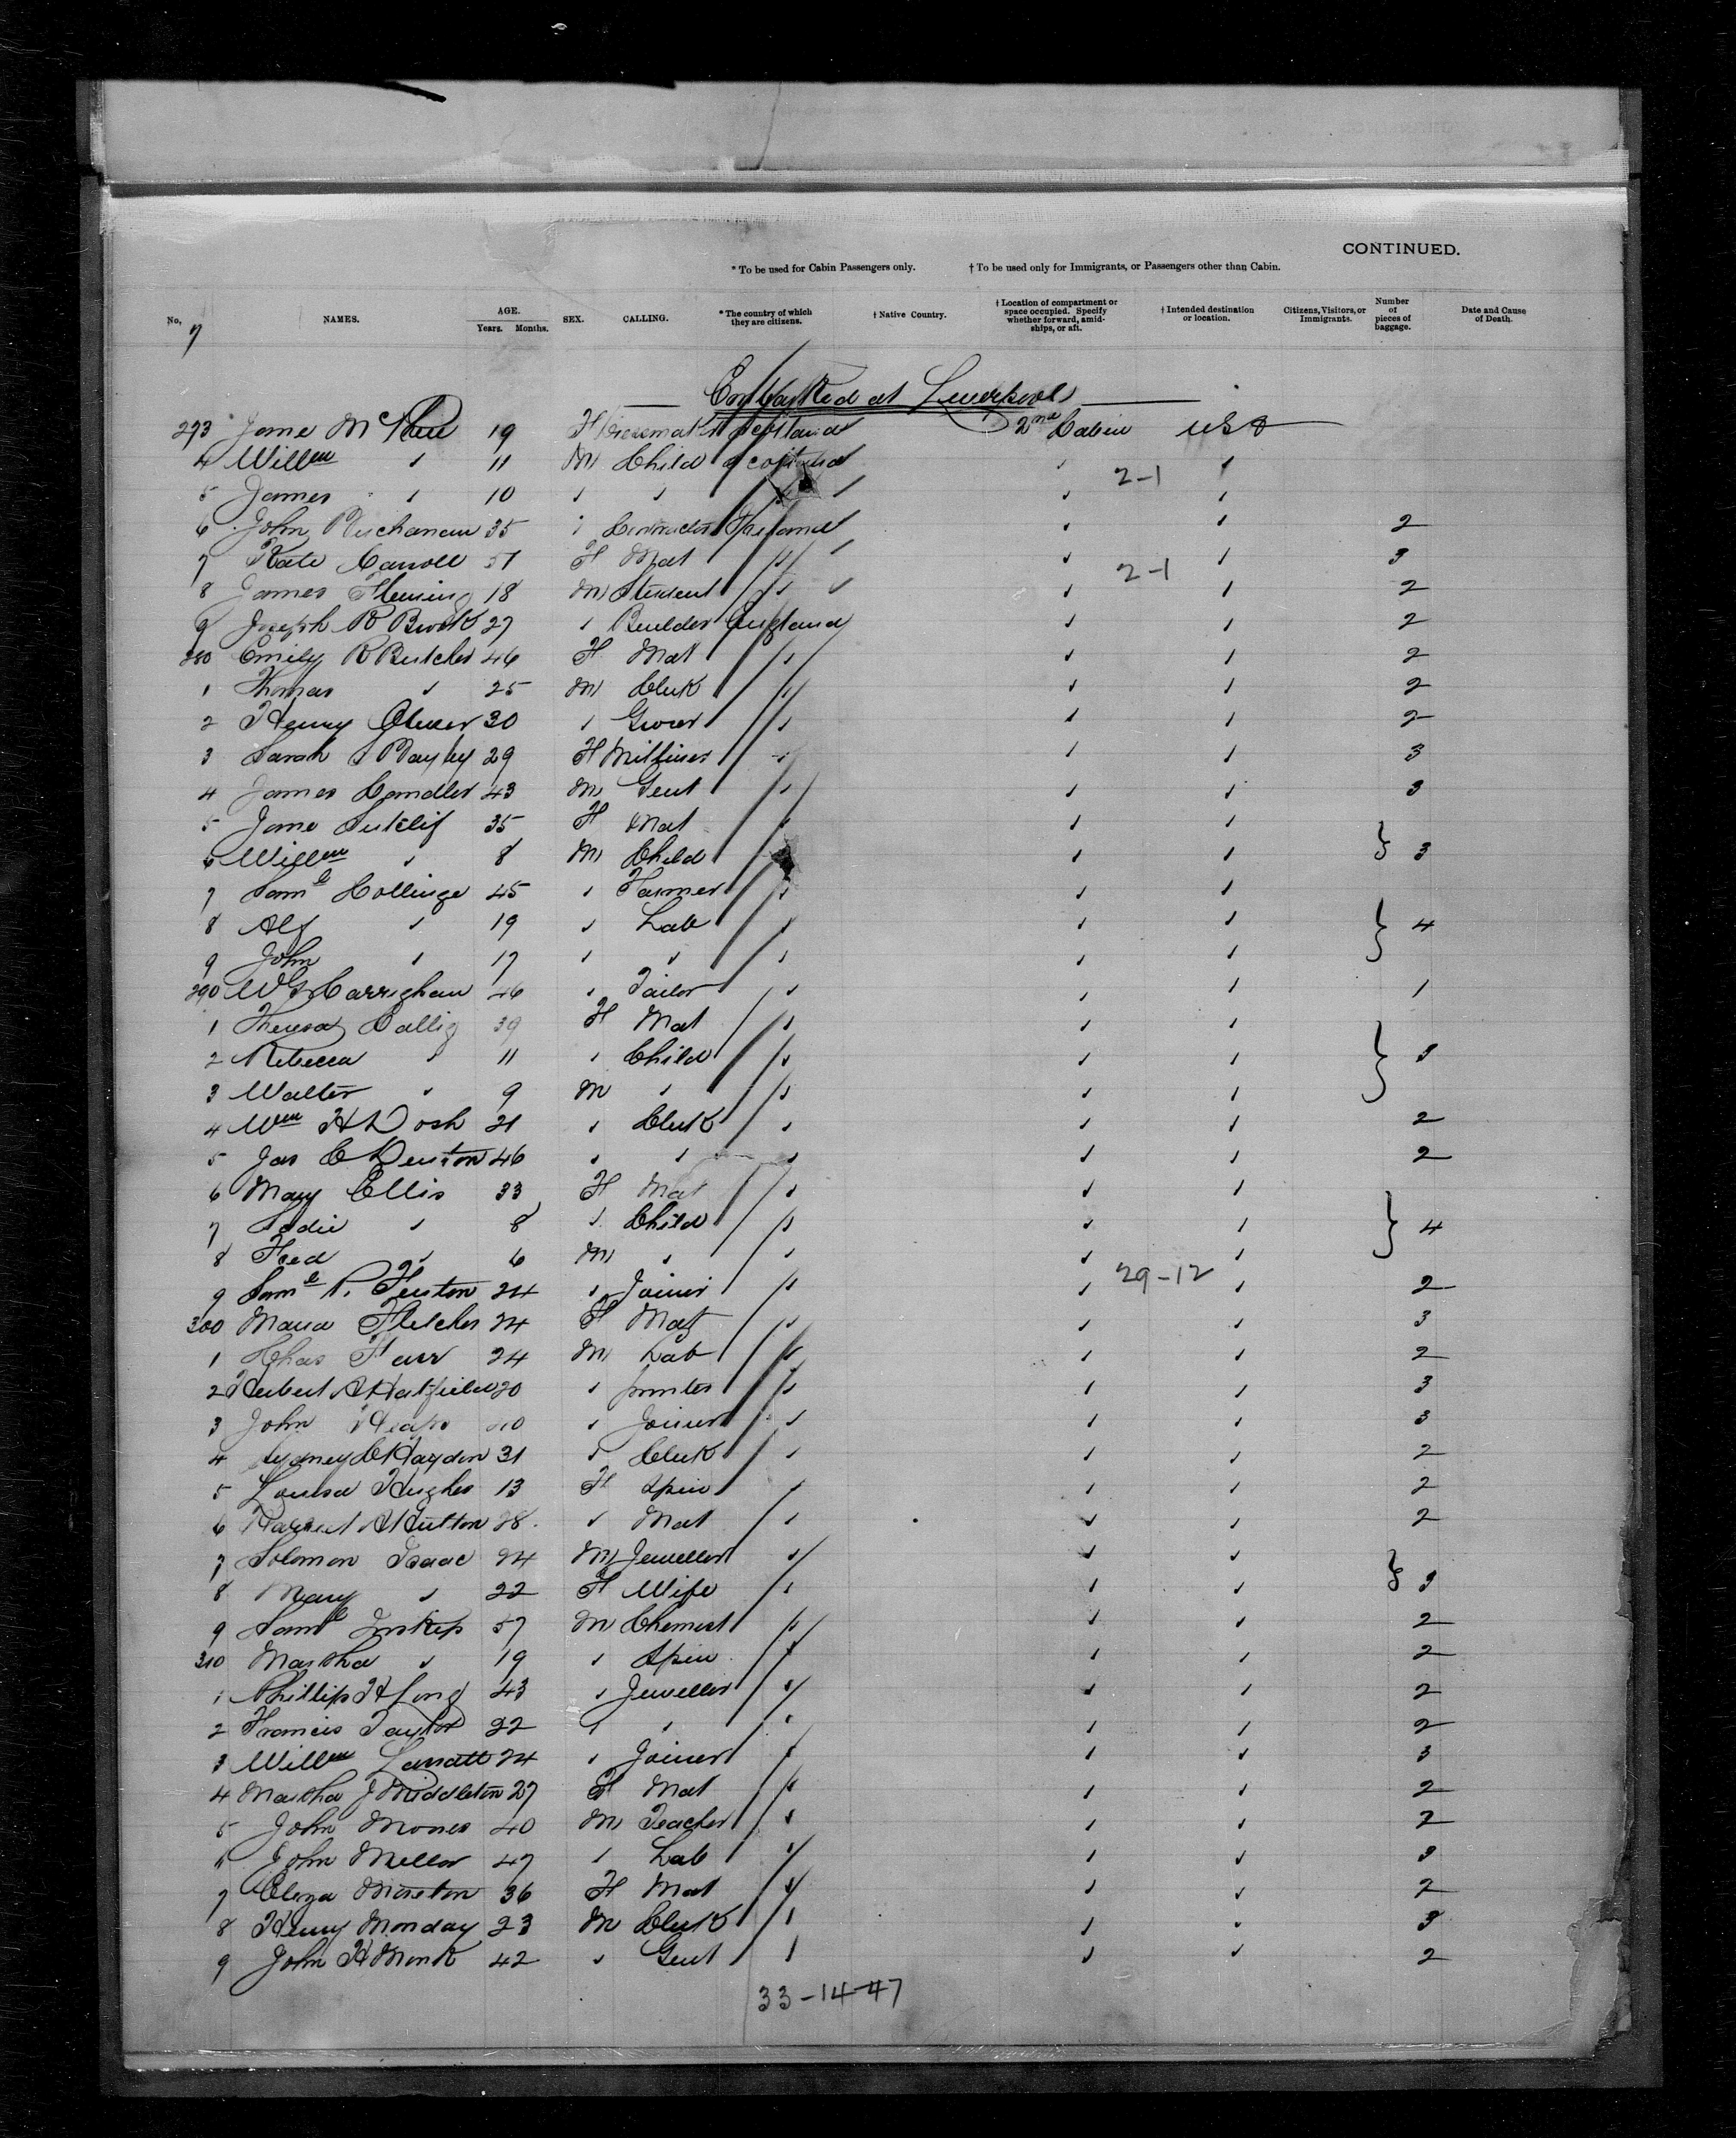 CONTINUED.
* To be used for Cabin Passengers only. † To be used only for Immigrants, or Passengers other than Cabin.
No. NAMES. AGE. Years. Months. SEX. CALLING. * The country of which they are citizens. † Native Country. † Location of compartment or space occupied. Specify whether forward, amidships, or aft. † Intended destination or location. Citizens, Visitors, or Immigrants. Number of pieces of baggage. Date and Cause of Death.
7
Embarked at Liverpool
273 Jane Mc 19 F Dressmaker Scotland 2nd Cabin USA
4 Willm " 11 M Child Scotland " 2-1 "
5 James " 10 " " " " "
6 John Buchanan 35 " Contractor Ireland " " 2
7 Kate Carroll 51 F Mat " " 2-1 " 3
8 James Fleming 18 M Student " " " 2
9 Joseph R Brook 27 " Builder England " " 2
280 Emily R Butcher 46 F Mat " " " 2
1 Thomas " 25 M Clerk " " " 2
2 Henry Oliver 30 " Grocer " " " 2
3 Sarah 29 F Milliner " " " 3
4 James Candler 43 M Gent " " " 3
5 Jane Sutclif 35 F Mat " " "
6 Willm " 8 M Child " " " } 3
7 Saml Collinge 45 " Farmer " " "
8 Alf " 19 " Lab " " " } 4
9 John " 17 " " " " "
290 46 " Tailor " " " 1
1 Theresa 39 F Mat " " "
2 Rebecca " 11 " Child " " " } 3
3 Walter " 9 M " " " "
4 Wm H Dosh 21 " Clerk " " " 2
5 Jas C Denton 46 " " " " " 2
6 Mary Ellis 33 F Mat " " "
7 Sadie " 8 " Child " " " } 4
8 Fred " 6 M " " " "
9 Saml P. Fenton 24 " Joiner " " 29-12 " 2
300 Maria Fletcher 24 F Mat " " " 3
1 Chas Farr 24 M Lab " " " 2
2 Herbert A Hatfield 20 " printer " " " 3
3 John Heaps " Joiner " " " 3
4 Sydney C Haydon 31 " Clerk " " " 2
5 Louisa Hughes 13 F Spin " " " 2
6 Harriet A Hutton 28 " Mat " " " 2
7 Solomon Isaac 24 M Jeweller " " "
8 Mary " 22 F Wife " " " } 3
9 Saml Inskip 57 M Chemist " " " 2
310 Martha " 19 " Spin " " " 2
1 Phillip H Long 43 " Jeweller " " " 2
2 Francis Taylor 22 " " " " " 2
3 Willm Larratt 24 " Joiner " " " 3
4 Martha J Middleton 27 F Mat " " " 2
5 John Moses 40 M Teacher " " " 2
6 John Mellor 47 " Lab " " " 3
7 Eliza Moreton 36 F Mat " " " 2
8 Henry Monday 23 M Clerk " " " 3
9 John H Monk 42 " Gent " " " 2
33-14-47